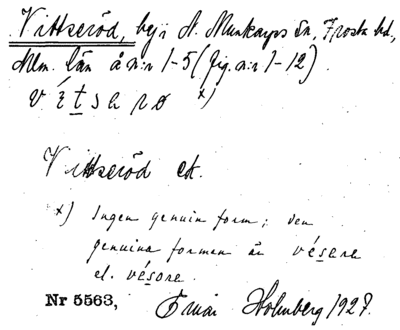 Vittseröd, by i S. Munkarps sn, Frosta hd,
Mlm. län å n:r 1-5 (fig. n:r 1-12).
x)
Vittseröd ek.
x) Ingen genuin form; den
genuina formen är vésara
el. vésøre.
Nr 5563, Einar Holmberg 1927.